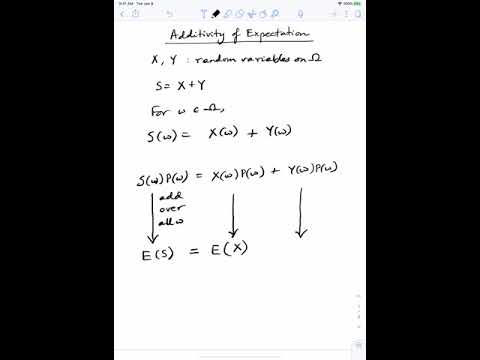 9:41 AM Tue Jan 9
Additivity of Expectation
X, Y : random variables on Ω
S = X + Y
For ω ∈ Ω,
S(ω) = X(ω) + Y(ω)
S(ω)P(ω) = X(ω)P(ω) + Y(ω)P(ω)
add
over
all ω
E(S) = E(X)